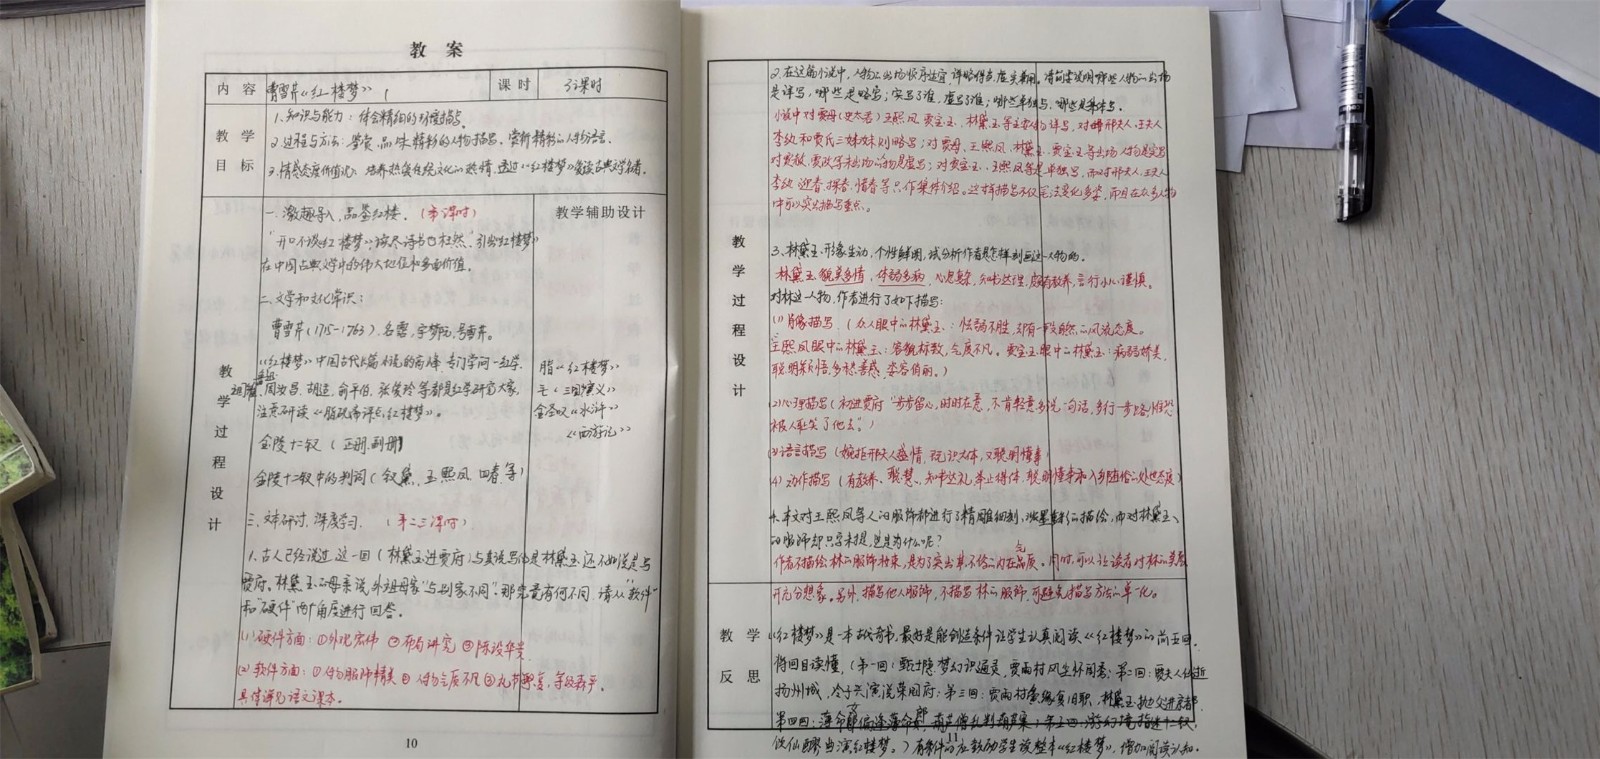 教 案
内 容 曹雪芹《红楼梦》 课 时 3课时
教 学 目 标
1.知识与能力：体会精细的环境描写。
2.过程与方法：鉴赏、品味精彩的人物描写，赏析精彩的人物语言。
3.情感态度价值观：培养热爱传统文化的热情，透过《红楼梦》爱读古典文学名著。
教 学 过 程 设 计
教学辅助设计
一、激趣导入，品鉴红楼。（第一课时）
"开口不谈红楼梦，读尽诗书也枉然"，引出《红楼梦》
在中国古典文学中的伟大地位和多面价值。
二、文学和文化常识：
曹雪芹（1715-1763）.名霑，字梦阮，号雪芹。
《红楼梦》中国古代长篇小说的高峰，专门学问—红学.
周汝昌、胡适、俞平伯、张爱玲等都是红学研究大家，
注意研读《脂砚斋评点红楼梦》。
金陵十二钗（正册.副册）
金陵十二钗中的判词（钗黛、王熙凤 四春 等）
脂《红楼梦》
毛《三国演义》
金圣叹《水浒》
《西游记》
三、文本研讨，深度学习.（第二三课时）
1.古人已经说过，这一回（林黛玉进贾府）与其说写的是林黛玉，还不如说是写
贾府。林黛玉的母亲说，外祖母家"与别家不同"，那究竟有何不同，请从"软件"
和"硬件"两个角度进行回答。
(1)硬件方面：①外观宏伟 ②布局讲究 ③陈设华贵.
(2)软件方面：①人物服饰精美 ②人物气质不凡 ③礼节繁复，等级森严。
具体详见语文课本。
10
2.在这篇小说中，人物的出场顺序适宜，详略得当，虚实兼用。请简要说明哪些人物的出场
是详写，哪些是略写；实写了谁，虚写了谁；哪些单独写，哪些是集体写。
小说中对贾母（史太君）王熙凤、贾宝玉、林黛玉等主要人物详写，对邢夫人、王夫人
李纨和贾氏三姊妹则略写；对贾母、王熙凤、林黛玉、贾宝玉等出场人物是实写
对贾赦、贾政等未出场的人物是虚写；对贾宝玉、王熙凤等是单独写，而对邢夫人、王夫人
李纨、迎春、探春、惜春等只作集体介绍。这样描写不仅笔法变化多姿，而且在众多人物
中可以突出描写重点。
教 学 过 程 设 计
3.林黛玉形象生动，个性鲜明，试分析作者是怎样刻画这一人物的。
林黛玉：貌美多情，体弱多病，心思身，知书达理，颇有教养，言行小心谨慎。
对林这一人物，作者进行了如下描写：
(1)肖像描写。（众人眼中的林黛玉：怯弱不胜，却有一段自然的风流态度。
王熙凤眼中的林黛玉：容貌标致，气度不凡。贾宝玉眼中的林黛玉：病弱娇美，
聪明颖悟，多愁善感，姿容俏丽。）
(2)心理描写（初进贾府"步步留心，时时在意，不肯轻意多说一句话，多行一步路，惟恐
被人耻笑了他去"）
(3)语言描写（婉拒邢夫人盛情，既识大体，又聪明懂事）
(4)动作描写（有教养、聪慧、知书达礼、举止得体，聪明懂事和入乡随俗的处世态度）
4.本文对王熙凤等人的服饰都进行了精雕细刻，浓墨重彩的描绘，而对林黛玉
的服饰却只字未提，这是为什么呢？
作者不描绘林的服饰打扮，是为了突出她不俗的内在气质。同时，可以让读者对林的美展
开充分想象。另外，描写他人服饰，不描写林的服饰，可避免描写方法的单一化。
教 学 反 思
《红楼梦》是一本古代奇书，最好是能创造条件让学生认真阅读《红楼梦》的前五回.
将回目读懂，（第一回：甄士隐梦幻识通灵，贾雨村风尘怀闺秀；第二回：贾夫人仙逝
扬州城，冷子兴演说荣国府；第三回：贾雨村夤缘复旧职，林黛玉抛父进京都.
第四回：薄命女偏逢薄命郎，葫芦僧乱判葫芦案；第五回：游幻境指迷十二钗，
饮仙醪曲演红楼梦。）有条件的应鼓励学生读整本《红楼梦》，增加阅读认知.
11